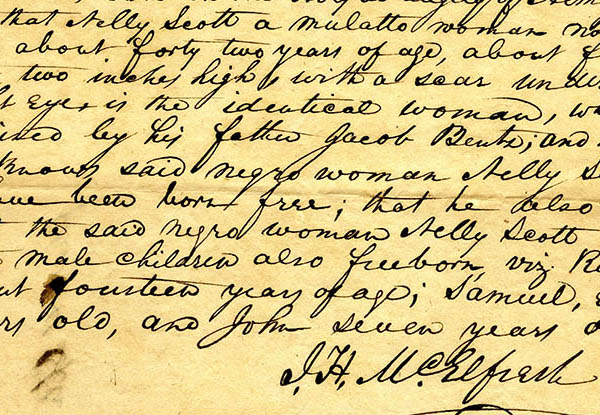 that Nelly Scott a mulatto woman no
about forty two years of age, about f
two inches high, with a scar und
t Eye, is the identical woman, w
ined by his father Jacob Bentz; and
Knows said negro woman Nelly S
ve been born free; that he also
t the said negro woman Nelly Scott
male children also freeborn, viz R
ut fourteen years of age; Samuel,
rs old, and John seven years o
J. H. McElfresh